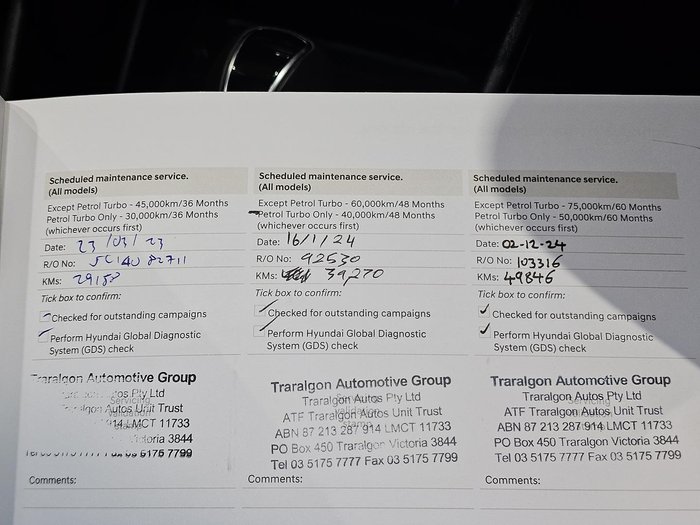 Scheduled maintenance service.
(All models)
Except Petrol Turbo - 45,000km/36 Months
Petrol Turbo Only - 30,000km/36 Months
(whichever occurs first)
Date: 23/03/23
R/O No: JC14U 82711
KMs: 29158
Tick box to confirm:
Checked for outstanding campaigns
Perform Hyundai Global Diagnostic
System (GDS) check
Traralgon Automotive Group
Autos Pty Ltd
Autos Unit Trust
914 LMCT 11733
Victoria 3844
5175 7799
Comments:
Scheduled maintenance service.
(All models)
Except Petrol Turbo - 60,000km/48 Months
Petrol Turbo Only - 40,000km/48 Months
(whichever occurs first)
Date: 16/1/24
R/O No: 92530
KMs: 39,270
Tick box to confirm:
Checked for outstanding campaigns
Perform Hyundai Global Diagnostic
System (GDS) check
Traralgon Automotive Group
Traralgon Autos Pty Ltd
ATF Traralgon Autos Unit Trust
ABN 87 213 287 914 LMCT 11733
PO Box 450 Traralgon Victoria 3844
Tel 03 5175 7777 Fax 03 5175 7799
Comments:
Scheduled maintenance service.
(All models)
Except Petrol Turbo - 75,000km/60 Months
Petrol Turbo Only - 50,000km/60 Months
(whichever occurs first)
Date: 02-12-24
R/O No: 103316
KMs: 49846
Tick box to confirm:
Checked for outstanding campaigns
Perform Hyundai Global Diagnostic
System (GDS) check
Traralgon Automotive Group
Traralgon Autos Pty Ltd
ATF Traralgon Autos Unit Trust
ABN 87 213 287 914 LMCT 11733
PO Box 450 Traralgon Victoria 3844
Tel 03 5175 7777 Fax 03 5175 7799
Comments: